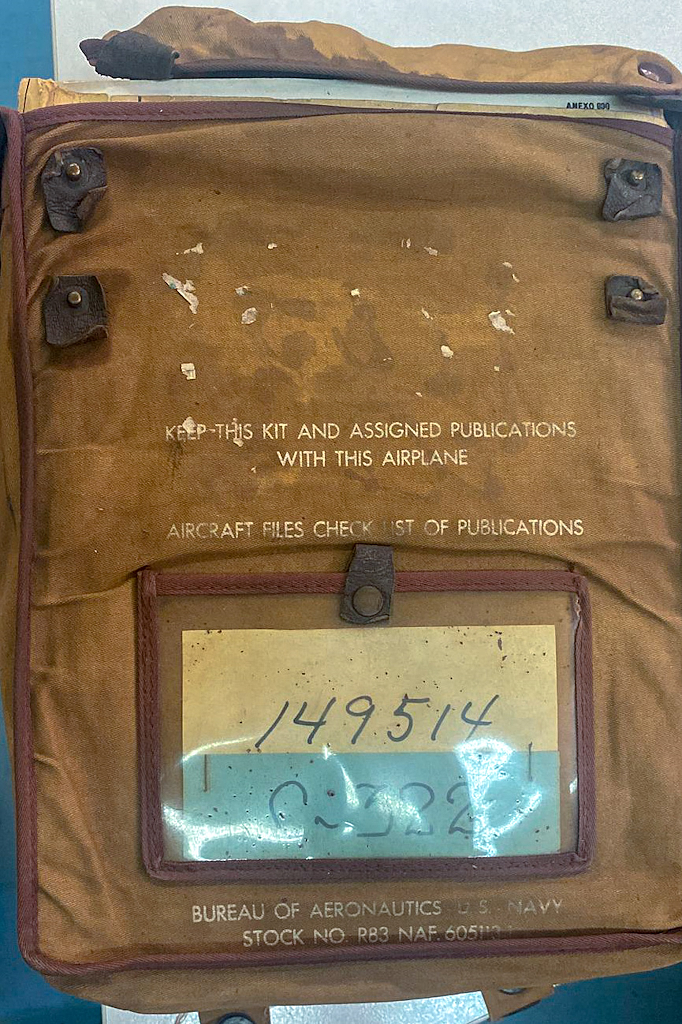 ANEXO
KEEP THIS KIT AND ASSIGNED PUBLICATIONS
WITH THIS AIRPLANE
AIRCRAFT FILES CHECK LIST OF PUBLICATIONS
149514
C-322
BUREAU OF AERONAUTICS U.S. NAVY
STOCK NO. R83 NAF.